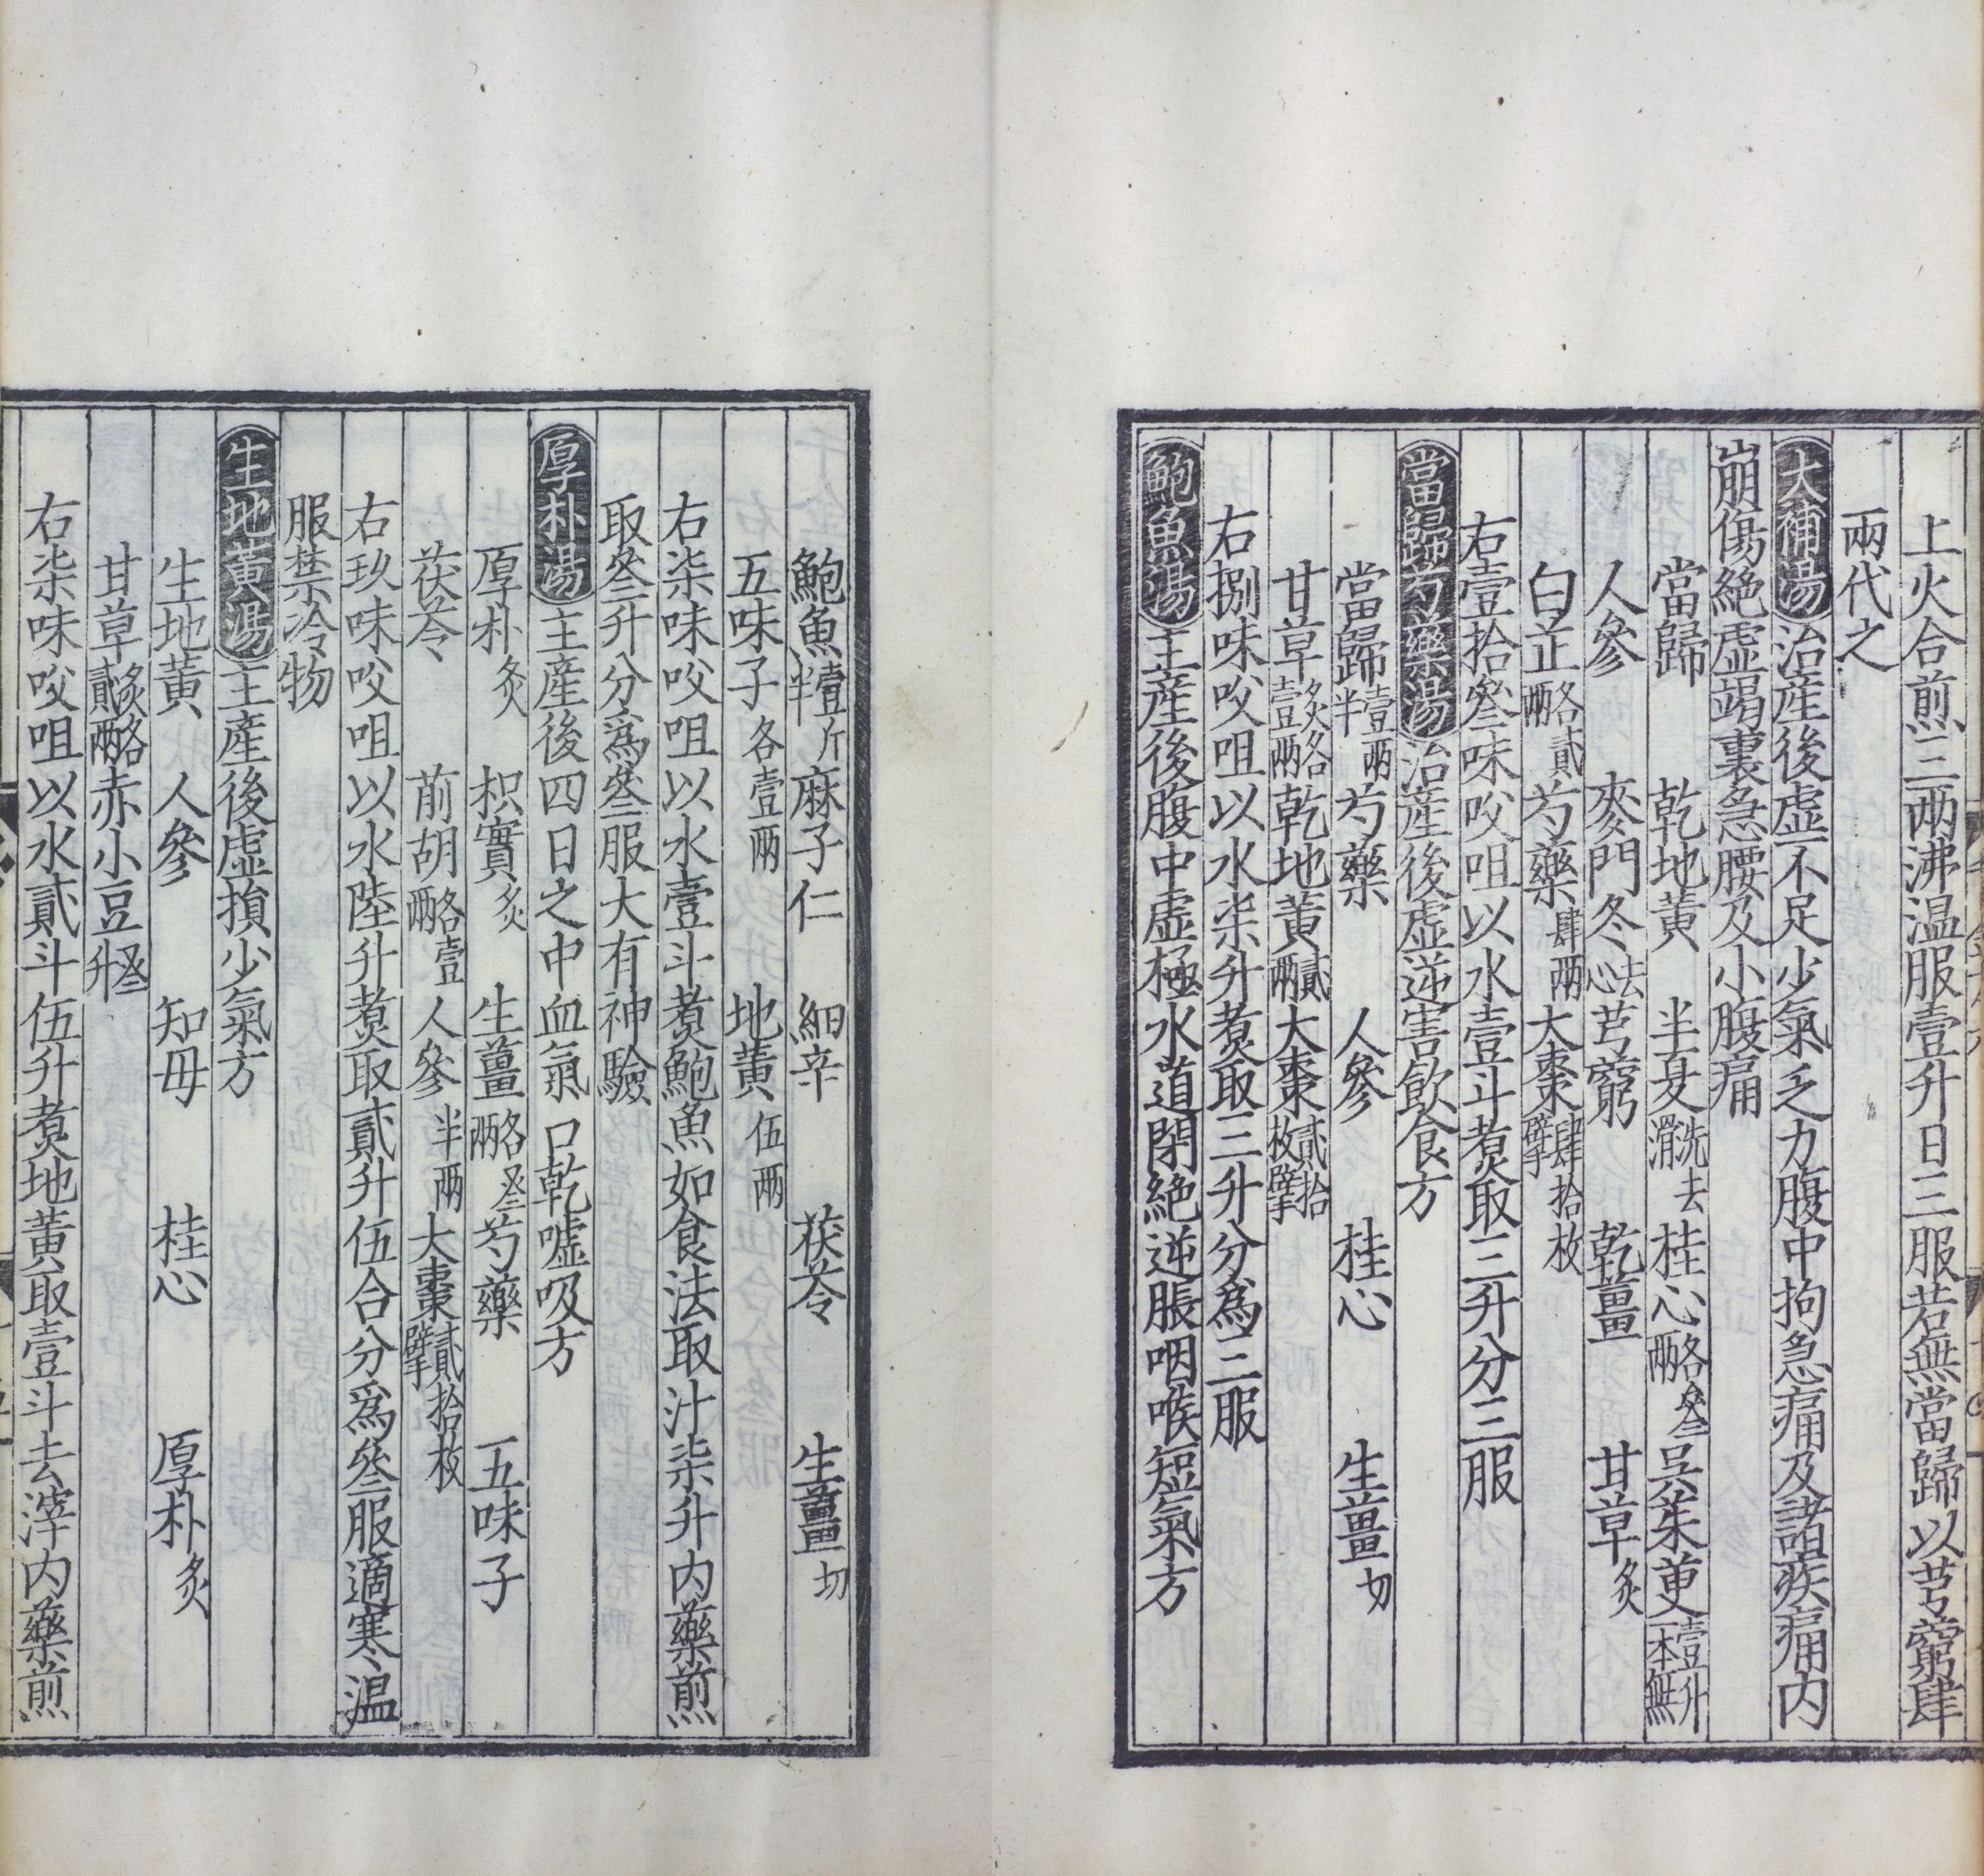 上火合煎三兩沸温服壹升日三服若無當歸以芎藭肆
兩代之
大補湯治産後虚不足少氣乏力腹中拘急痛及諸疾痛内
崩傷絶虚竭裏急腰及小腹痛
當歸 乾地黄 半夏洗去滑 桂心各叄兩 吳茱萸壹升一本無
人參 麥門冬去心 芎藭 乾薑 甘草炙
白芷各貳兩 芍藥肆兩 大棗肆拾枚擘
右壹拾叄味㕮咀以水壹斗煑取三升分三服
當歸芍藥湯治産後虚逆害飲食方
當歸壹兩半 芍藥 人參 桂心 生薑切
甘草炙各壹兩 乾地黄貳兩 大棗貳拾枚擘
右捌味㕮咀以水柒升煑取三升分爲三服
鮑魚湯主産後腹中虚極水道閉絶逆脹咽喉短氣方
鮑魚壹斤半 麻子仁 細辛 茯苓 生薑切
五味子各壹兩 地黄伍兩
右柒味㕮咀以水壹斗煑鮑魚如食法取汁柒升内藥煎
取叄升分爲叄服大有神驗
厚朴湯主産後四日之中血氣口乾嘘吸方
厚朴炙 枳實炙 生薑各叄兩 芍藥 五味子
茯苓 前胡各壹兩 人參半兩 大棗貳拾枚擘
右玖味㕮咀以水陸升煑取貳升伍合分爲叄服適寒温
服禁冷物
生地黄湯主産後虚損少氣方
生地黄 人參 知母 桂心 厚朴炙
甘草炙各貳兩 赤小豆叄升
右柒味㕮咀以水貳斗伍升煑地黄取壹斗去滓内藥煎